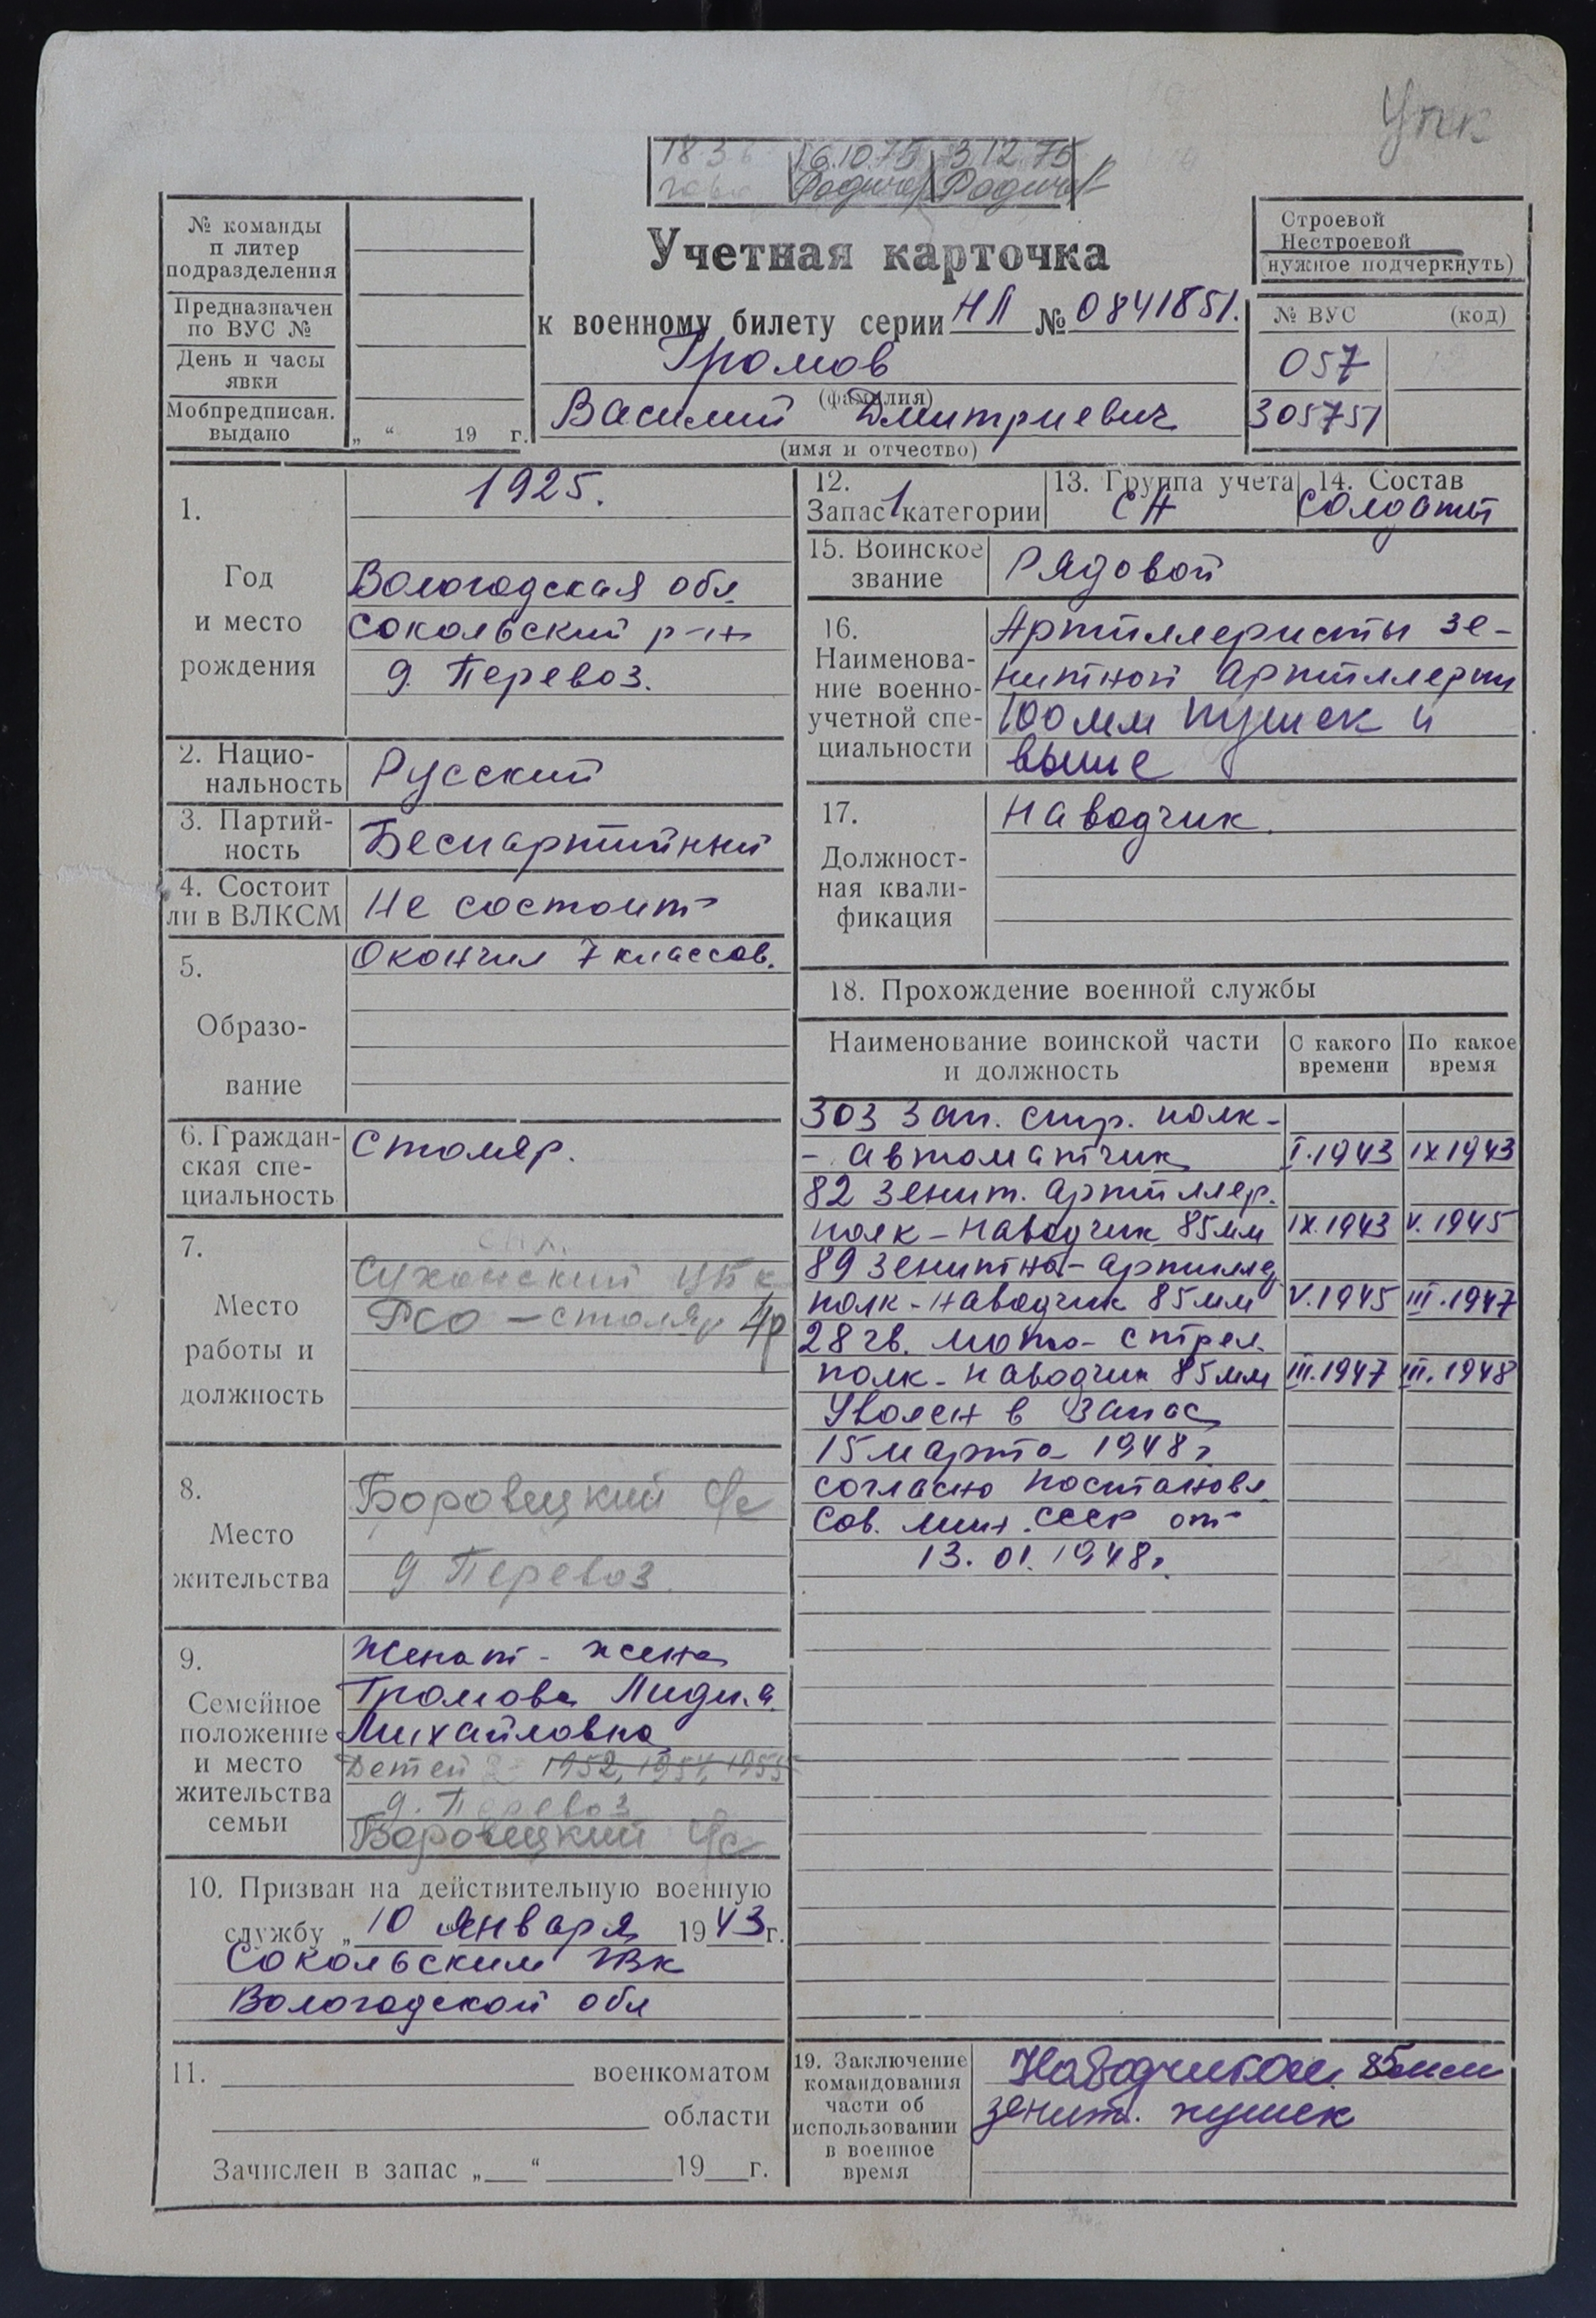 Упк
16.10.75 3.12.75
№ команды
и литер
подразделения
Предназначен
по ВУС №
День и часы
явки
Мобпредписан.
выдано „ “ 19 г.
Учетная карточка
к военному билету серии НЛ № 0841851.
Громов
(фамилия)
Василий Дмитриевич
(имя и отчество)
Строевой
Нестроевой
(нужное подчеркнуть)
№ ВУС (код)
057
305751
1.
Год
и место
рождения
1925.
Вологодская обл.
Сокольский р-н
д. Перевоз.
2. Нацио-
нальность
Русский
3. Партий-
ность
Беспартийный
4. Состоит
ли в ВЛКСМ
Не состоит
5.
Образо-
вание
Окончил 7 классов.
6. Граждан-
ская спе-
циальность
Столяр.
7.
Место
работы и
должность
Сухонский ЦБК
РСО – столяр 4р
8.
Место
жительства
Боровецкий с/с
д Перевоз.
9.
Семейное
положение
и место
жительства
семьи
Женат - жена
Громова Лидия
Михайловна
Детей 1952, 1954, 1955
д. Перевоз
Боровецкий с/с
10. Призван на действительную военную
службу „ 10 “ января 1943 г.
Сокольским РВК
Вологодской обл
11. военкоматом
области
Зачислен в запас „ “ 19 г.
12.
Запас 1 категории
13. Группа учета
СА
14. Состав
Солдаты
15. Воинское
звание
Рядовой
16.
Наименова-
ние военно-
учетной спе-
циальности
Артиллеристы зе-
нитной артиллерии
100мм пушек и
выше
17.
Должност-
ная квали-
фикация
Наводчик.
18. Прохождение военной службы
Наименование воинской части
и должность
С какого
времени
По какое
время
303 Зап. стр. полк-
- автоматчик I.1943 IX 1943
82 зенит. артиллер.
полк – наводчик 85мм IX.1943 V.1945
89 зенитно- артиллер
полк – наводчик 85мм V.1945 III.1947
28 гв. мото- стрел.
полк – наводчик 85мм III.1947 III.1948
Уволен в запас
15 марта 1948 г
согласно постановл
Сов. мин. СССР от
13. 01. 1948г.
19. Заключение
командования
части об
использовании
в военное
время
Наводчиком 85мм
зенит. пушек